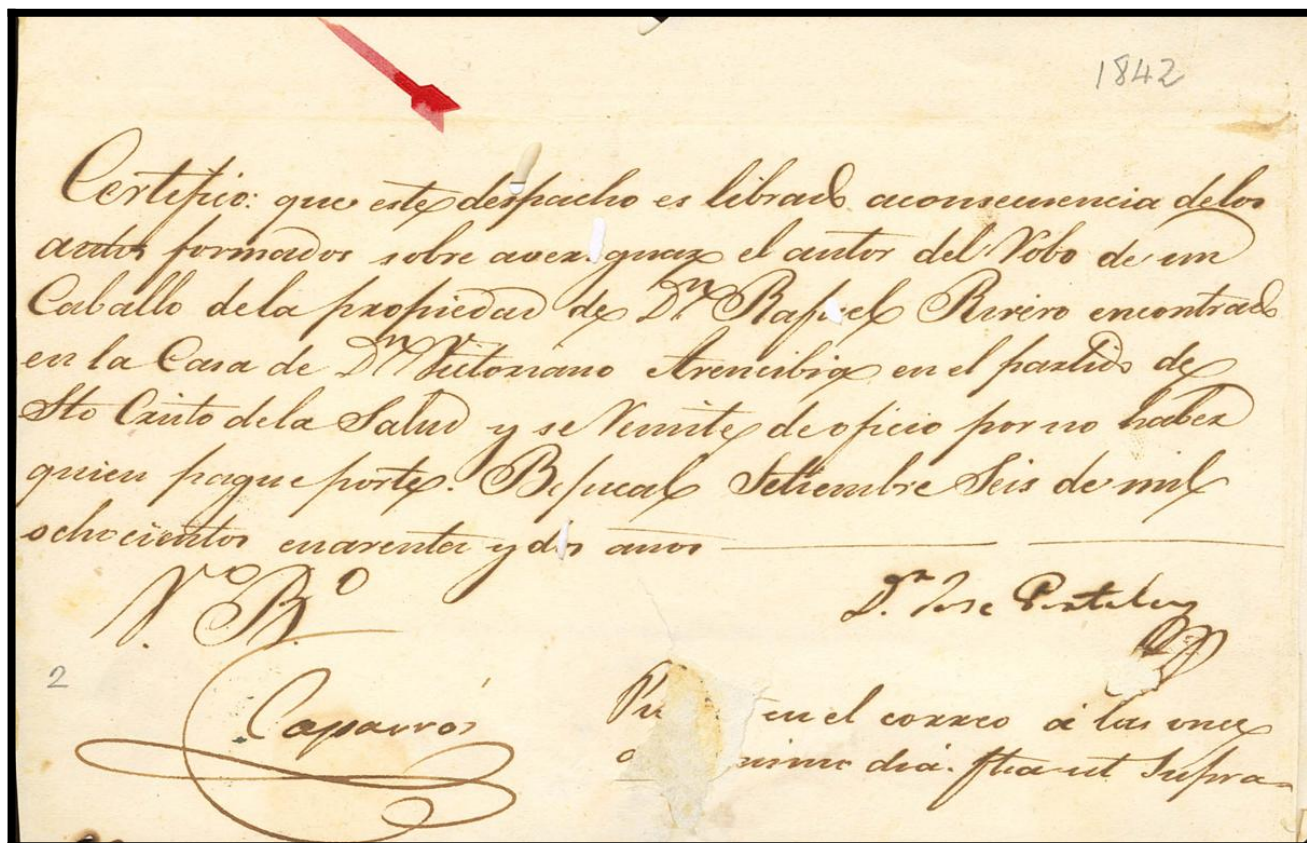 1842
Certifico: que este despacho es librado aconsecuencia delos
autos formados sobre averiguar el autor del Robo de un
Caballo dela propiedad de Dn. Rafael Rivero encontrado
en la Casa de Dn Victoriano Arencibia en el partido de
Sto Cristo dela Salud y se Remite de oficio por no haber
quien pague porte. Bejucal Setiembre Seis de mil
ochocientos cuarenta y dos anos
V.o B.o
Dn. Jose
2
Caparros
en el correo á las once
mismo dia. fha ut Supra